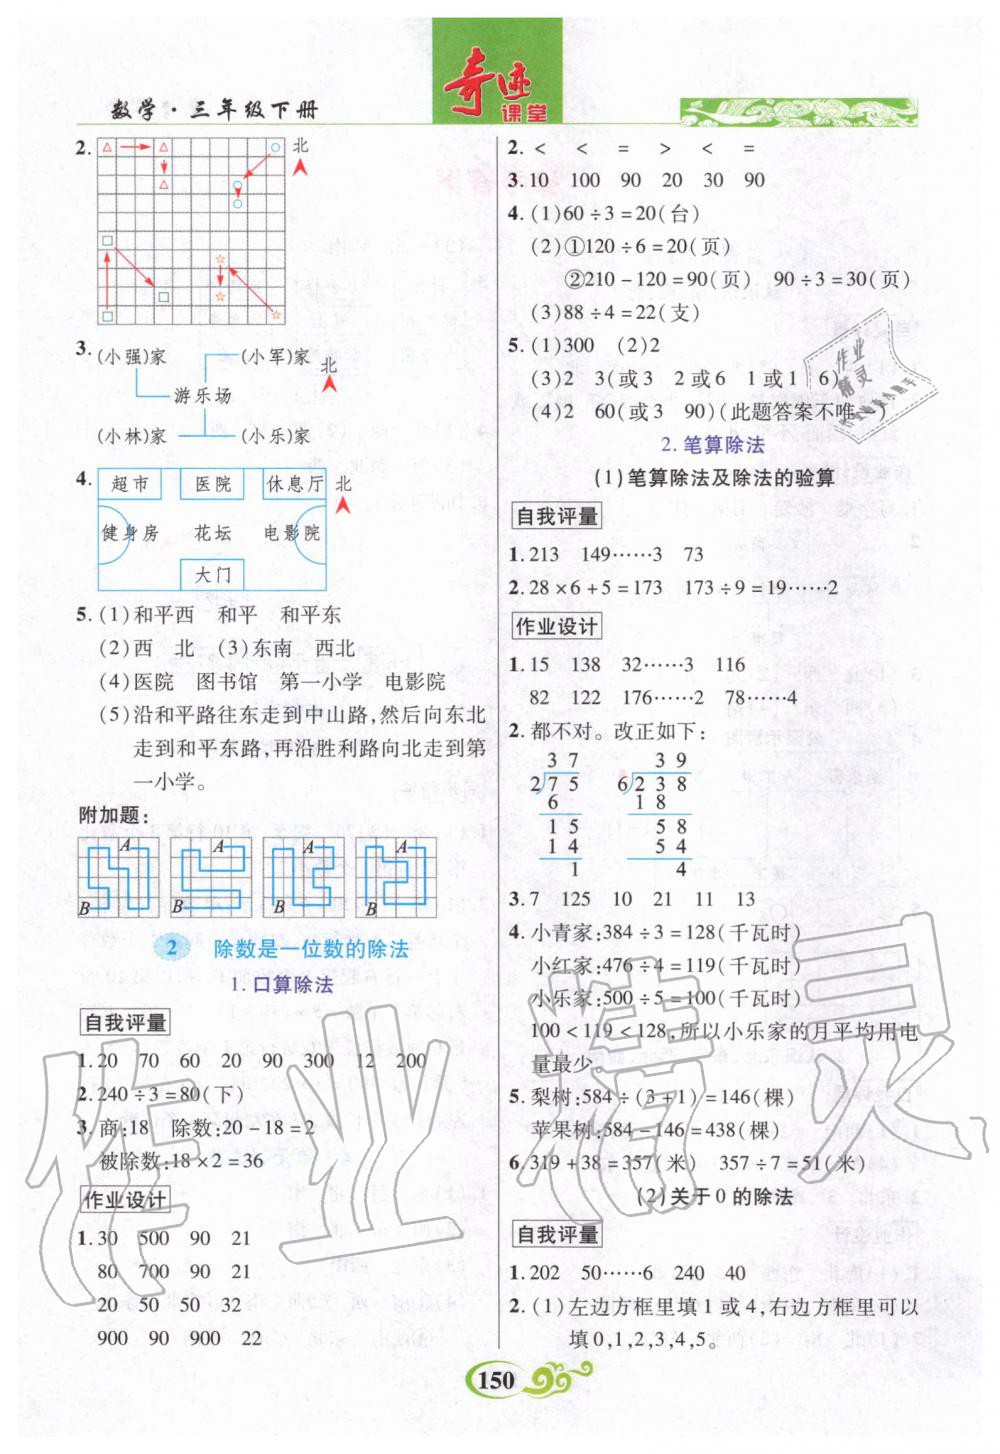 奇迹
课堂
数学·三年级下册
2.
北
3.
(小强)家 (小军)家
北
游乐场
(小林)家 (小乐)家
4.
超市 医院 休息厅 北
健身房 花坛 电影院
大门
5.(1)和平西 和平 和平东
(2)西 北 (3)东南 西北
(4)医院 图书馆 第一小学 电影院
(5)沿和平路往东走到中山路,然后向东北
走到和平东路,再沿胜利路向北走到第
一小学。
附加题:
A A A A
B B B B
2 除数是一位数的除法
1.口算除法
自我评量
1.20 70 60 20 90 300 12 200
2.240÷3=80(下)
3.商:18 除数:20-18=2
被除数:18×2=36
作业设计
1.30 500 90 21
80 700 90 21
20 50 50 32
900 90 900 22
2.< < = > < =
3.10 100 90 20 30 90
4.(1)60÷3=20(台)
(2)①120÷6=20(页)
②210-120=90(页) 90÷3=30(页)
(3)88÷4=22(支)
5.(1)300 (2)2
(3)2 3(或3 2或6 1或1 6)
(4)2 60(或3 90)(此题答案不唯一)
2.笔算除法
(1)笔算除法及除法的验算
自我评量
1.213 149……3 73
2.28×6+5=173 173÷9=19……2
作业设计
1.15 138 32……3 116
82 122 176……2 78……4
2.都不对。改正如下:
37 39
2)75 6)238
6 18
15 58
14 54
1 4
3.7 125 10 21 11 13
4.小青家:384÷3=128(千瓦时)
小红家:476÷4=119(千瓦时)
小乐家:500÷5=100(千瓦时)
100<119<128,所以小乐家的月平均用电
量最少。
5.梨树:584÷(3+1)=146(棵)
苹果树:584-146=438(棵)
6.319+38=357(米) 357÷7=51(米)
(2)关于0的除法
自我评量
1.202 50……6 240 40
2.(1)左边方框里填1或4,右边方框里可以
填0,1,2,3,4,5。
150
作业精灵
作业
精灵